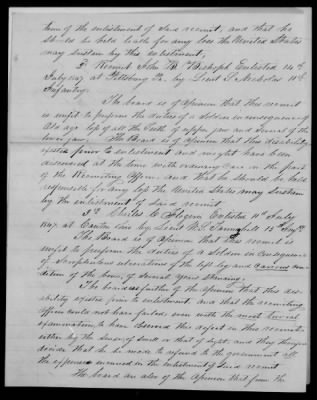 tion of the enlistment of said recruit, and that he
should be held liable for any loss the United States
may sustain by this enlistment.
2. Recruit John Enlisted 14th
July 1847 at Pittsburg Pa. by Lieut Nicholas 11th
Infantry.
The board is of opinion that this recruit
is unfit to perform the duties of a Soldier in consequence of
Old age loss of all the teeth of upper jaw and several of the
lower jaw. The Board is of opinion that this disability
existed prior to enlistment and might have been
discovered at the time with ordinary care on the part
of the Recruiting Officer and that he should be held
responsible for any loss the United States may sustain
by the enlistment of said recruit.
3d Enlisted 11th July
1847 at Canton by Lieut 15th Infty
The Board is of opinion that this recruit is
unfit to perform the duties of a Soldier in consequence
of Scrofulous ulcerations of the left leg and carious con-
dition of the bone, of several years standing.
The board is further of the opinion that this dis-
ability existed prior to enlistment, and that the recruiting
officer could not have failed, even with the most trivial
examination to have discovered this defect in this recruit
either by the sense of smell or that of sight, and they therefore
decide that he be made to refund to the government all
the expenses incurred in the enlistment of said recruit
The board are also of the opinion that from the